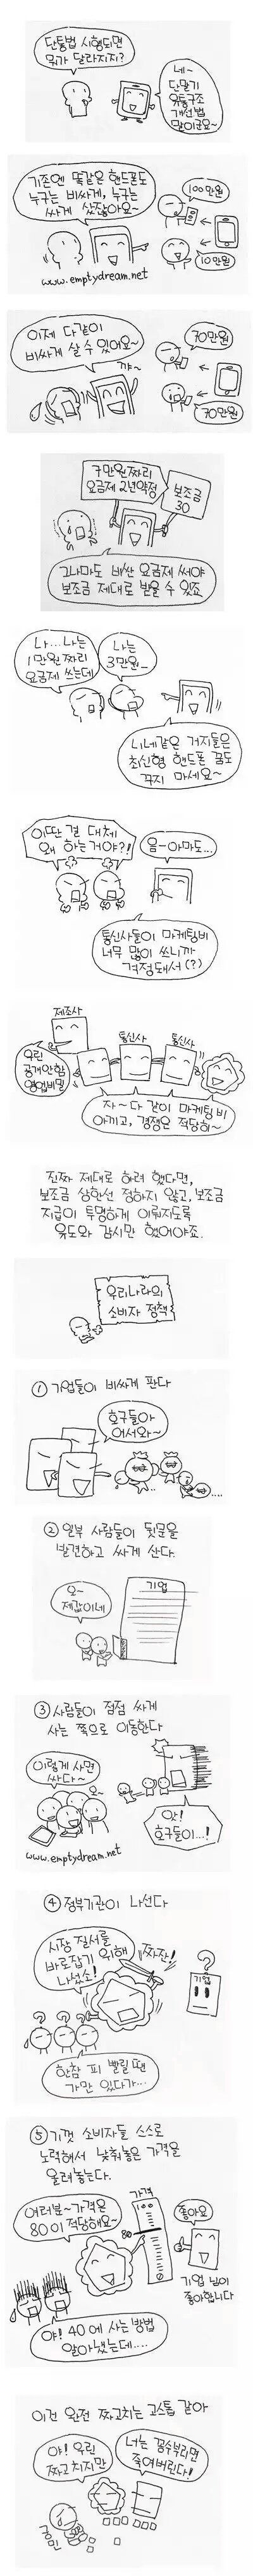 단통법 시행되면
뭐가 달라지지?
네~
단말기
유통구조
개선법
말이군요~
기존엔 똑같은 핸드폰도
누구는 비싸게, 누구는
싸게 샀잖아요~
100만원
10만원
www.emptydream.net
이제 다같이
비싸게 살 수 있어요~
꺄~
70만원
70만원
7만원짜리
요금제 2년약정
보조금
30
그나마도 비싼 요금제 써야
보조금 제대로 받을 수 있죠
나...나는
1만원짜리
요금제 쓰는데
나는
3만원...
니네같은 거지들은
최신형 핸드폰 꿈도
꾸지 마세요~
이딴 걸 대체
왜 하는거야?!
음-아마도...
통신사들이 마케팅비
너무 많이 쓰니까
걱정돼서(?)
제조사
통신사
통신사
우린
공개안함
영업비밀
자~다 같이 마케팅비
아끼고, 경쟁은 적당히~
진짜 제대로 하려 했다면,
보조금 상한선 정하지 않고, 보조금
지급이 투명하게 이뤄지도록
유도와 감시만 했어야죠.
우리나라의
소비자 정책
① 기업들이 비싸게 판다
호구들아
어서와~
② 일부 사람들이 뒷문을
발견하고 싸게 산다.
오~
제값이네
기업
③ 사람들이 점점 싸게
사는 쪽으로 이동한다
이렇게 사면
싸다~
오~
앗!
호구들이...!
www.emptydream.net
④ 정부기관이 나선다
시장 질서를
바로잡기 위해
나섰소!
짜잔!
기업
한참 피 빨릴 땐
가만 있다가...
⑤ 기껏 소비자들 스스로
노력해서 낮춰놓은 가격을
올려놓는다.
여러분~가격은
80이 적당해요~
가격
100
80
0
좋아요
기업 님이
좋아합니다
야! 40에 사는 방법
알아냈는데....
이건 완전 짜고치는 고스톱 같아
아! 우린
짜고 치지만
너는 꼼수부리면
죽여버린다!
국민